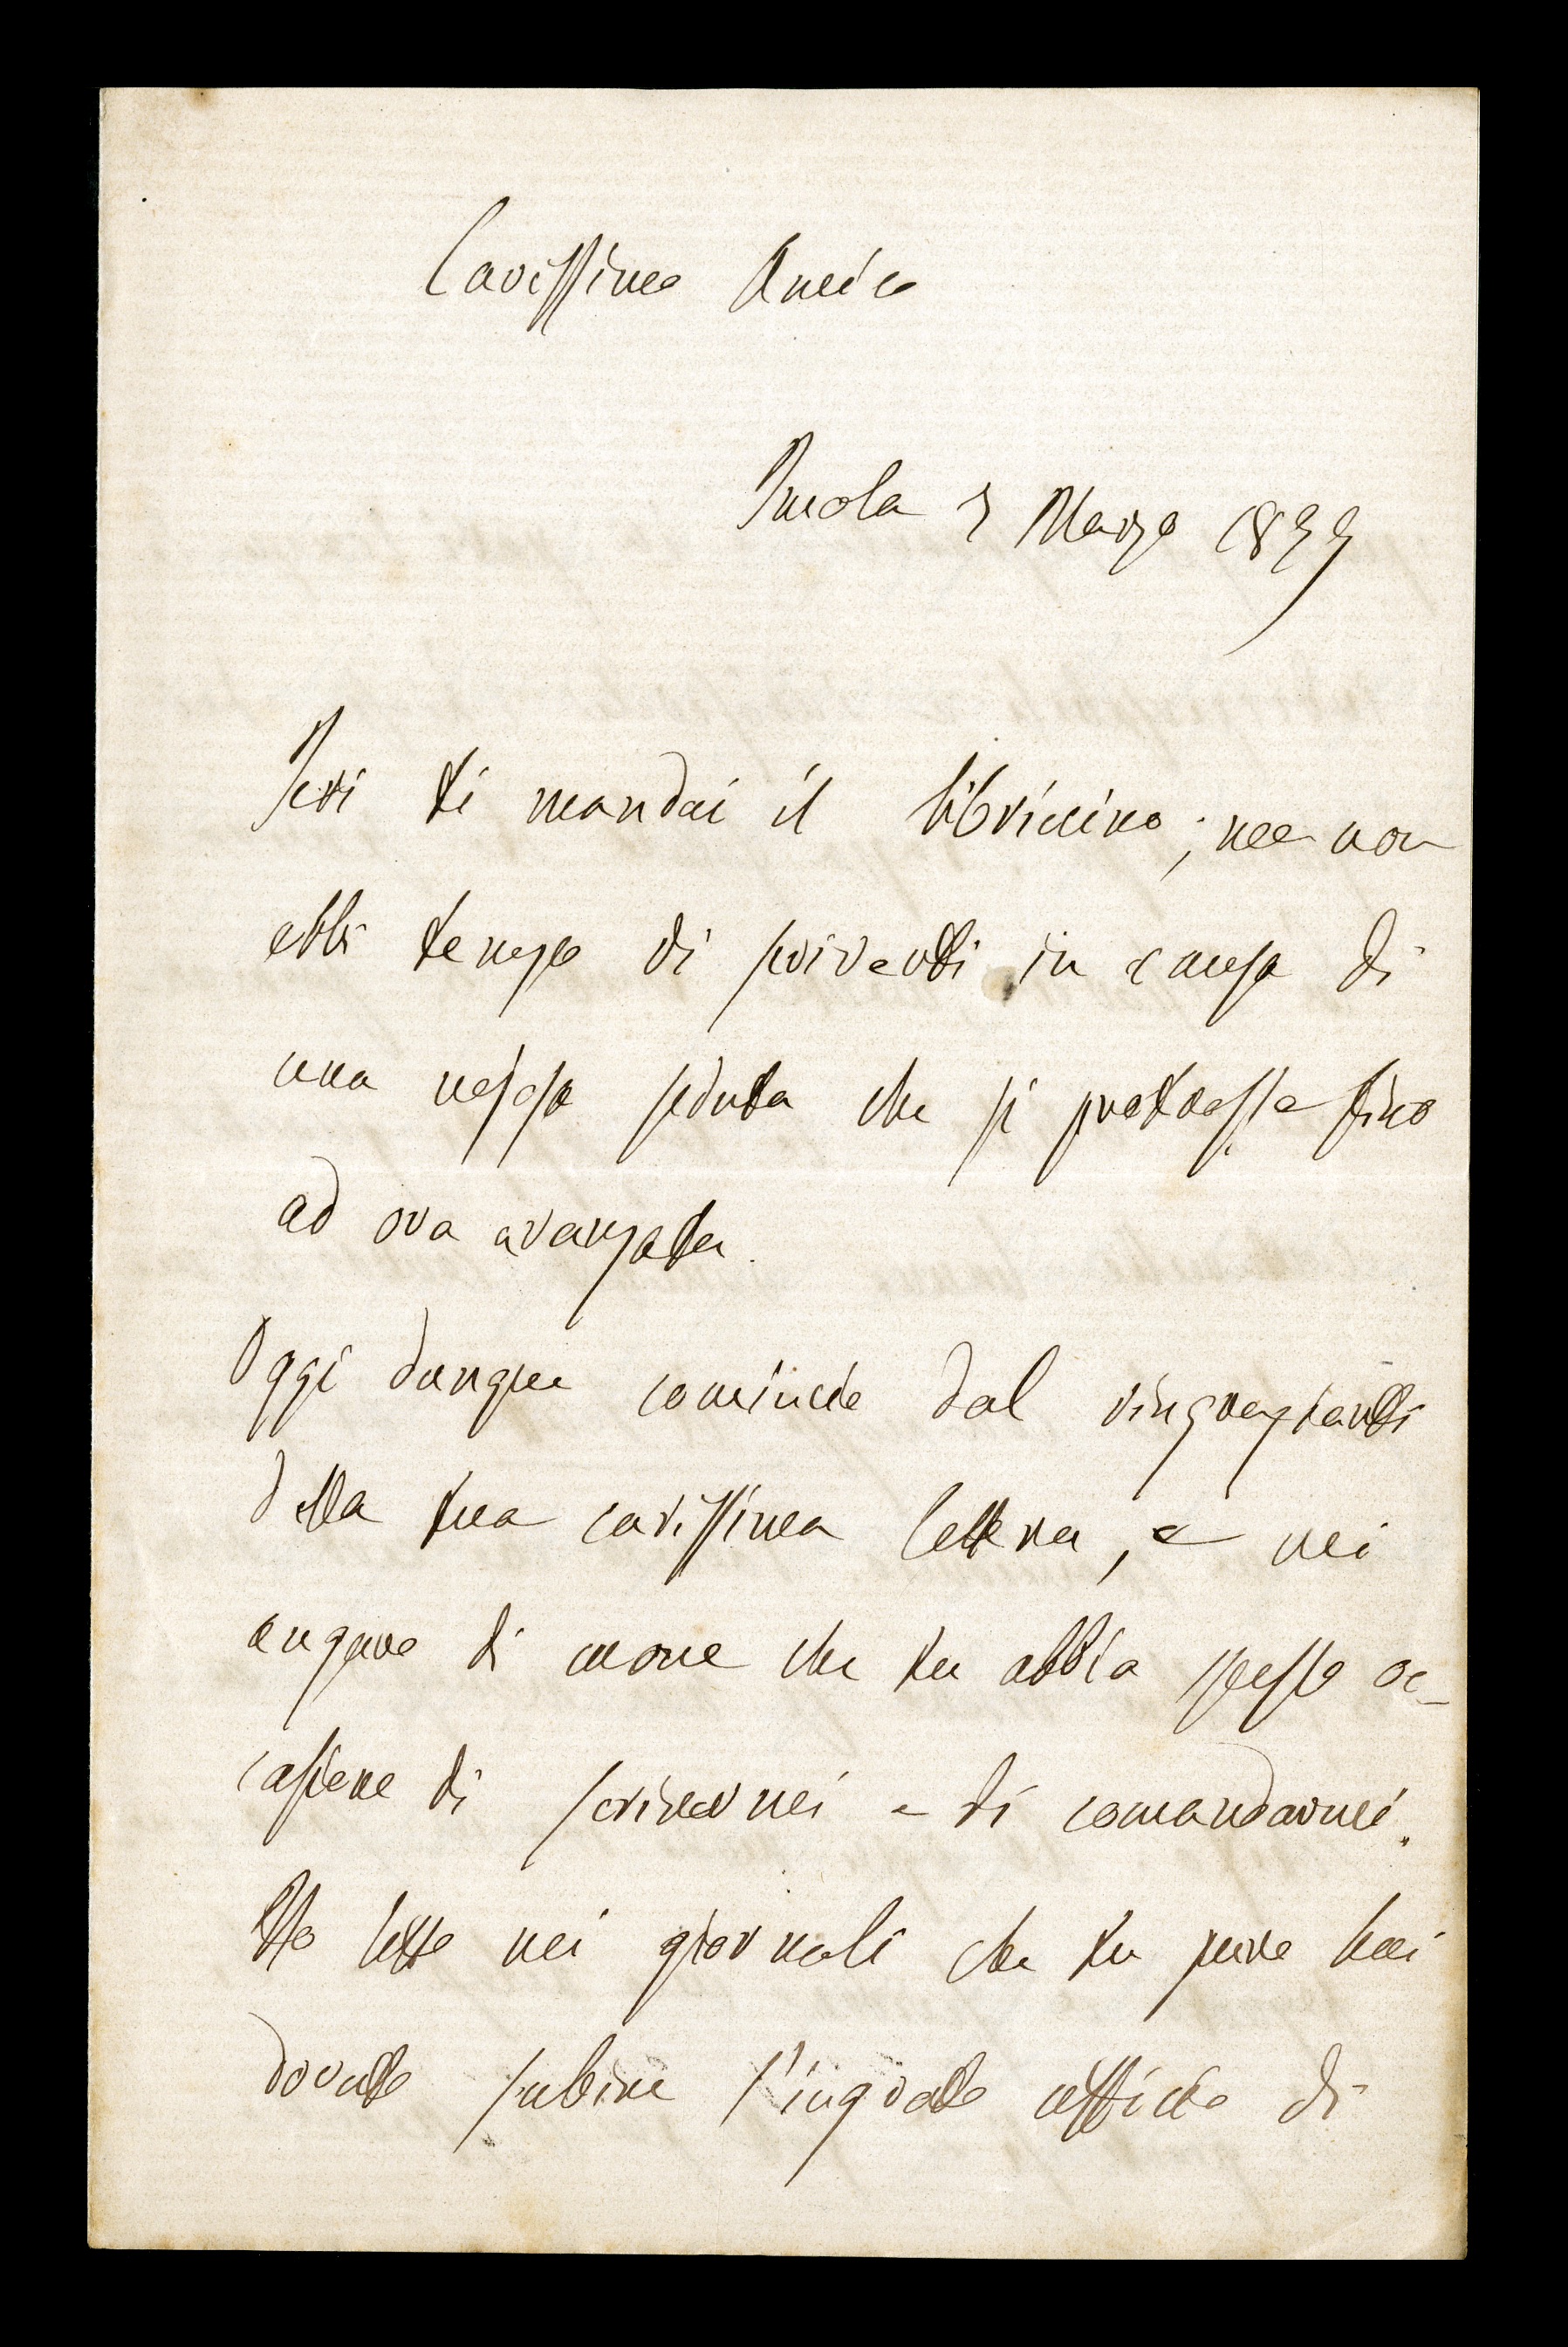 Carissimo Amico
Imola 7 Marzo 1877
Ieri ti mandai il libriccino; ma non
ebbi tempo di scriverti in causa di
una seduta che si protrasse fino
ad ora avanzata.
Oggi dunque comincio dal ringraziarti
della tua carissima lettera, e mi
auguro di cuore che tu abbia spesso oc-
casione di scrivermi e di comandarmi.
Ho letto nei giornali che tu pure hai
dovuto subire l'ingrato ufficio di